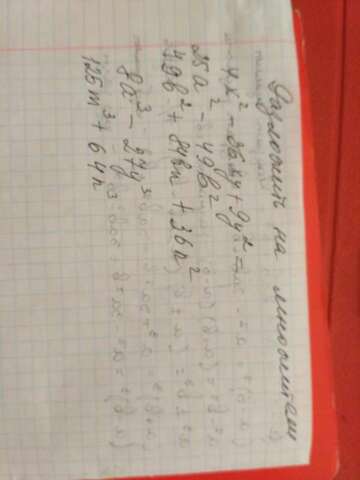 Разложить на множители
4x² - 36xy + 9y² =
25a² - 49b²
49b² + 84bn + 36n²
8a³ - 27y³
125m³ + 64n³